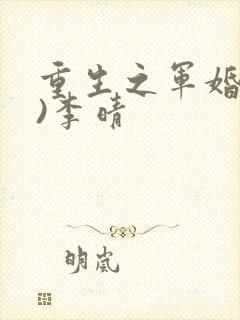 重生之军婚
)李晴
明岚